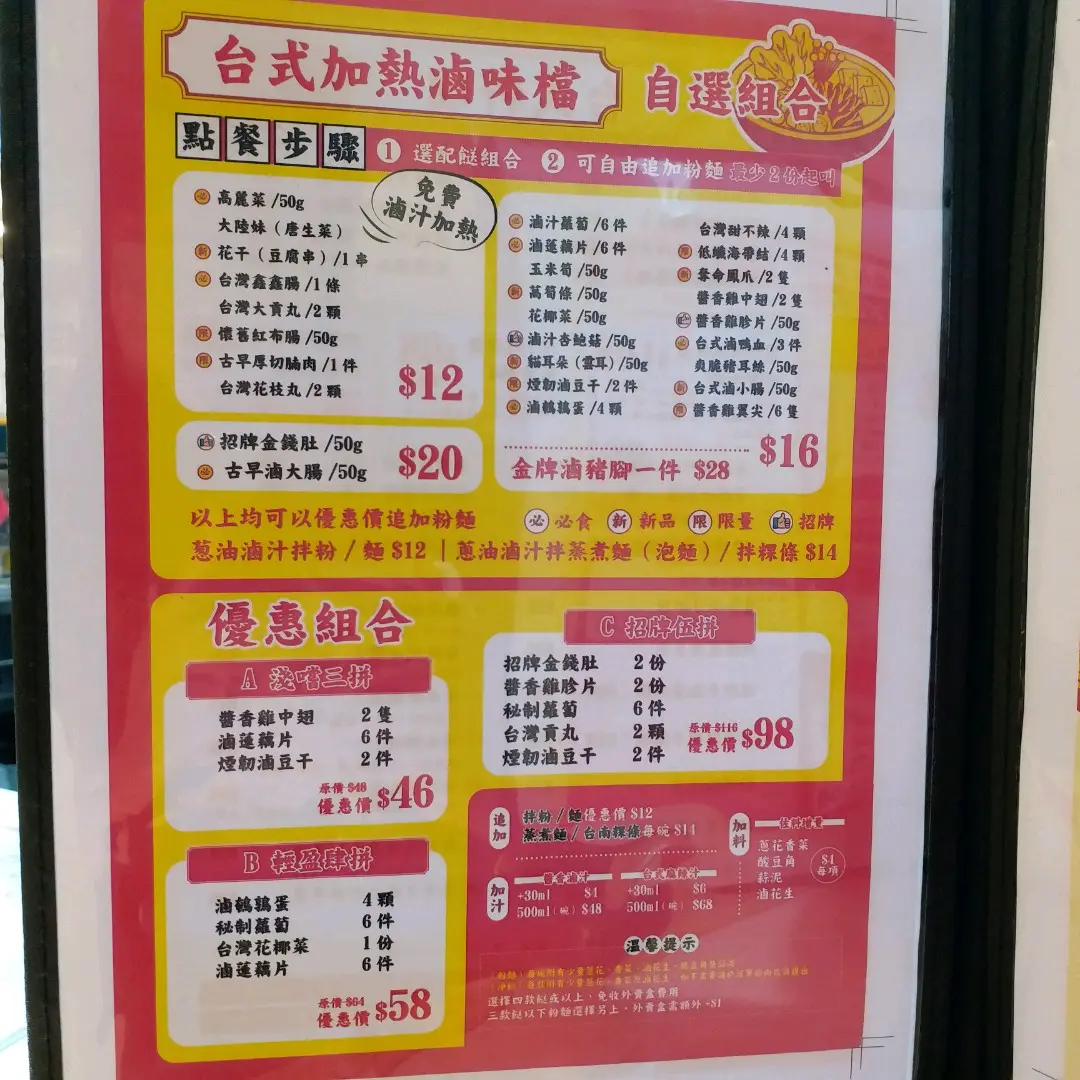 台式加熱滷味檔
自選組合
點餐步驟
① 選配餸組合 ② 可自由追加粉麵 最少2份起叫
免費
滷汁加熱
必 高麗菜 /50g
大陸妹（唐生菜）
新 花干（豆腐串）/1 串
必 台灣鑫鑫腸 /1 條
台灣大貢丸 /2 顆
限 懷舊紅布腸 /50g
限 古早厚切腩肉 /1 件
台灣花枝丸 /2 顆
$12
招牌金錢肚 /50g
必 古早滷大腸 /50g
$20
必 滷汁蘿蔔 /6 件
必 滷蓮藕片 /6 件
玉米筍 /50g
新 萵筍條 /50g
花椰菜 /50g
滷汁杏鮑菇 /50g
新 貓耳朵（雲耳）/50g
限 煙韌滷豆干 /2 件
必 滷鵪鶉蛋 /4 顆
台灣甜不辣 /4 顆
限 低蠟海帶結 /4 顆
新 奪命鳳爪 /2 隻
醬香雞中翅 /2 隻
醬香雞胗片 /50g
必 台式滷鴨血 /3 件
爽脆豬耳絲 /50g
新 台式滷小腸 /50g
限 醬香雞翼尖 /6 隻
$16
金牌滷豬腳一件 $28
以上均可以優惠價追加粉麵
必 必食 新 新品 限 限量 招牌
葱油滷汁拌粉 / 麵 $12 | 蔥油滷汁拌蒸煮麵（泡麵）/ 拌粿條 $14
優惠組合
A 淺嚐三拼
醬香雞中翅 2 隻
滷蓮藕片 6 件
煙韌滷豆干 2 件
原價 $48
優惠價 $46
B 輕盈肆拼
滷鵪鶉蛋 4 顆
秘制蘿蔔 6 件
台灣花椰菜 1 份
滷蓮藕片 6 件
原價 $64
優惠價 $58
C 招牌伍拼
招牌金錢肚 2 份
醬香雞胗片 2 份
秘制蘿蔔 6 件
台灣貢丸 2 顆
煙韌滷豆干 2 件
原價 $116
優惠價 $98
追加
拌粉 / 麵優惠價 $12
蒸煮麵 / 台南粿條每碗 $14
加汁
醬香滷汁
+30ml $4
500ml（碗）$48
台式麻辣汁
+30ml $6
500ml（碗）$68
加料
佐料增量
蔥花香菜
酸豆角
蒜泥
滷花生
$4
每項
溫馨提示
選擇四款餸或以上、免收外賣盒費用
三款餸以下粉麵選擇另上、外賣盒需額外 +$1